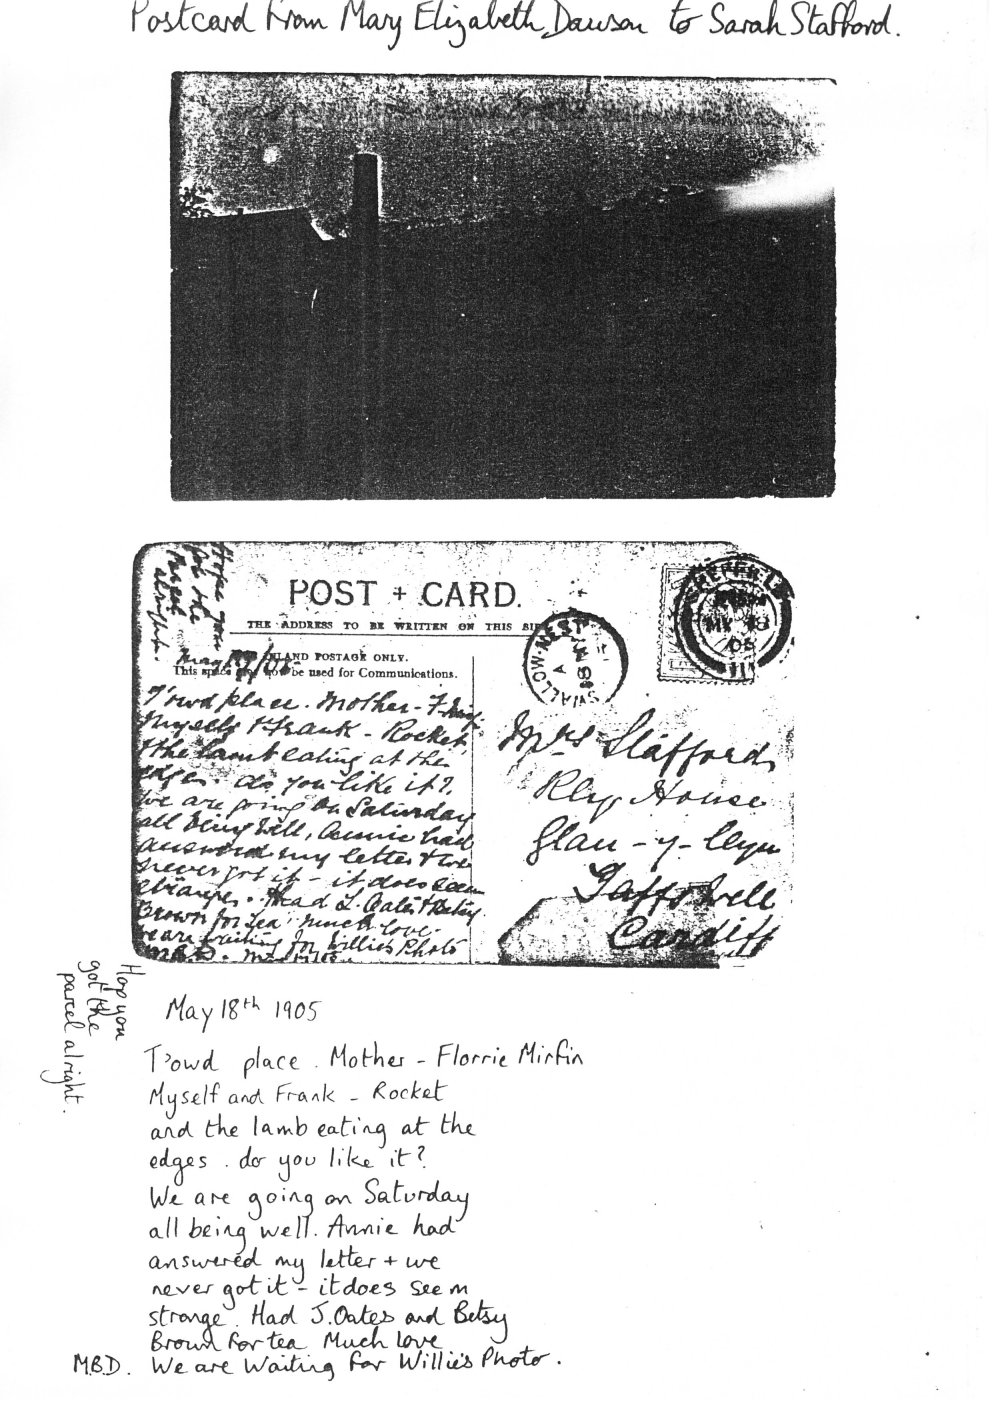 Postcard From Mary Elizabeth Dawson to Sarah Stafford.
Hope you
got the
Parcel
alright.
POST + CARD.
THE ADDRESS TO BE WRITTEN ON THIS
INLAND POSTAGE ONLY.
This space may be used for Communications.
SWALLOW-NEST
MY 18
05
T'owd place. Mother - F.
Myself & Frank - Rocket
& the lamb eating at the
edges. do you like it?
We are going on Saturday
all being well, Annie had
answered my letter & we
never got it - it does seem
strange. Had J. Oates & Betsy
Brown for tea. much love.
We are waiting for Willie's Photo
Mrs Stafford,
Rly House
Glan-y-Llyn
Taffswell
Cardiff
Hop you
got the
parcel alright.
May 18th 1905
T'owd place. Mother - Florrie Mirfin
Myself and Frank - Rocket
and the lamb eating at the
edges. do you like it?
We are going on Saturday
all being well. Annie had
answered my letter + we
never got it - it does seem
strange. Had J. Oates and Betsy
Brown for tea Much love
M.B.D. We are Waiting for Willie's Photo.